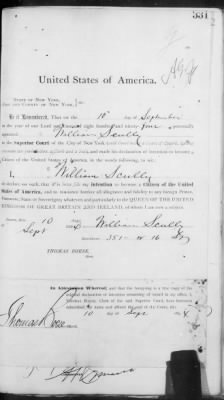 331
United States of America.
STATE OF NEW YORK,
CITY AND COUNTY OF NEW YORK,
Be it Remembered, That on the 10 day of September
in the year of our Lord one thousand eight hundred and ninety-four personally
appeared William Scully
in the Superior Court of the City of New York
and made his declaration of intention to become a
Citizen of the United States of America, in the words following, to wit:
I, William Scully
do declare on oath, that it is bona fide my intention to become a Citizen of the United
States, and to renounce forever all allegiance and fidelity to any foreign Prince,
Potentate, State or Sovereignty whatever and particularly to the QUEEN OF THE UNITED
KINGDOM OF GREAT BRITAIN AND IRELAND, of whom I am now a subject.
10
Sept William Scully
351 W 16
THOMAS BOESE,
In Attestation Whereof, and that the foregoing is a true copy of the
original declaration of intention remaining of record in my office, I,
Thomas Boese, Clerk of the said Superior Court, have hereunto
subscribed my name and affixed the seal of the said Court, this
10 day of Sept
Thomas Boese